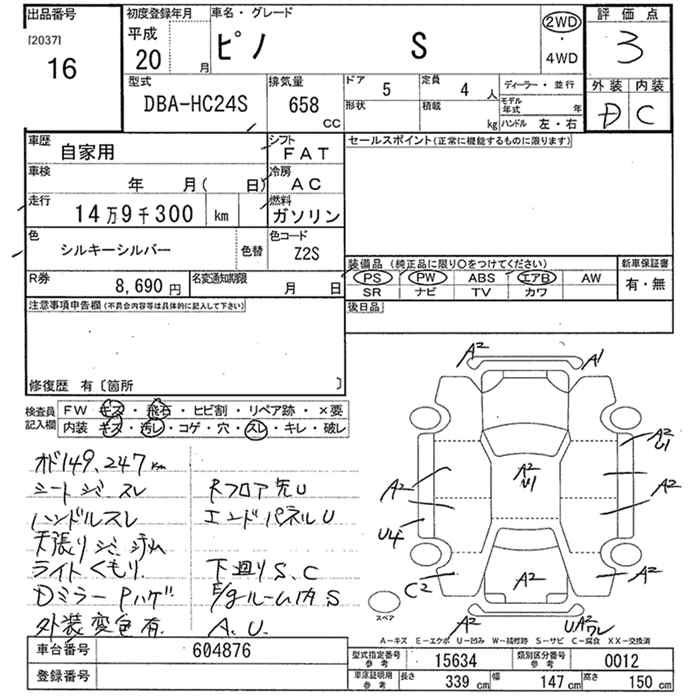 出品番号
[2037]
16
初度登録年月
平成
20 月
車名・グレード
ピノ S
2WD
・
4WD
評価点
3
外装 内装
D C
型式
DBA-HC24S
排気量
658
CC
ドア
5
定員
4 人
形状
積載
kg
ディーラー・並行
モデル年式 年
ハンドル 左・右
車歴
自家用
シフト
FAT
車検
年 月( 日)
冷房
AC
走行
14万9千300 km
燃料
ガソリン
色
シルキーシルバー
色替
色コード
Z2S
R券
8,690円
名変通知期限
月 日
セールスポイント(正常に機能するものに限ります)
装備品(純正品に限り○をつけてください)
PS PW ABS エアB AW
SR ナビ TV カワ
新車保証書
有・無
後日品
注意事項申告欄(不具合内容等は具体的に記入して下さい)
修復歴 有〔箇所 〕
検査員記入欄
FW キズ・飛石・ヒビ割・リペア跡・×要
内装 キズ・汚レ・コゲ・穴・スレ・キレ・破レ
オド149,247km
シートシミスレ
ハンドルスレ
天張りシミ
ライトくもり.
Dミラー Pハゲ
外装変色有.
Rフロア先U
エンドパネルU
下廻りS.C
E/gルーム内S
A.U.
A2
A1
A2
U1
A2
U1
A2
A2
U4
C2
A2
A2
A2
UA2ワレ
スペア
A-キズ E-エクボ U-凹み W-補修跡 S-サビ C-腐食 XX-交換済
車台番号
604876
登録番号
型式指定番号
参考
15634
類別区分番号
参考
0012
車庫証明用
参考
長さ
339 cm
幅
147 cm
高さ
150 cm